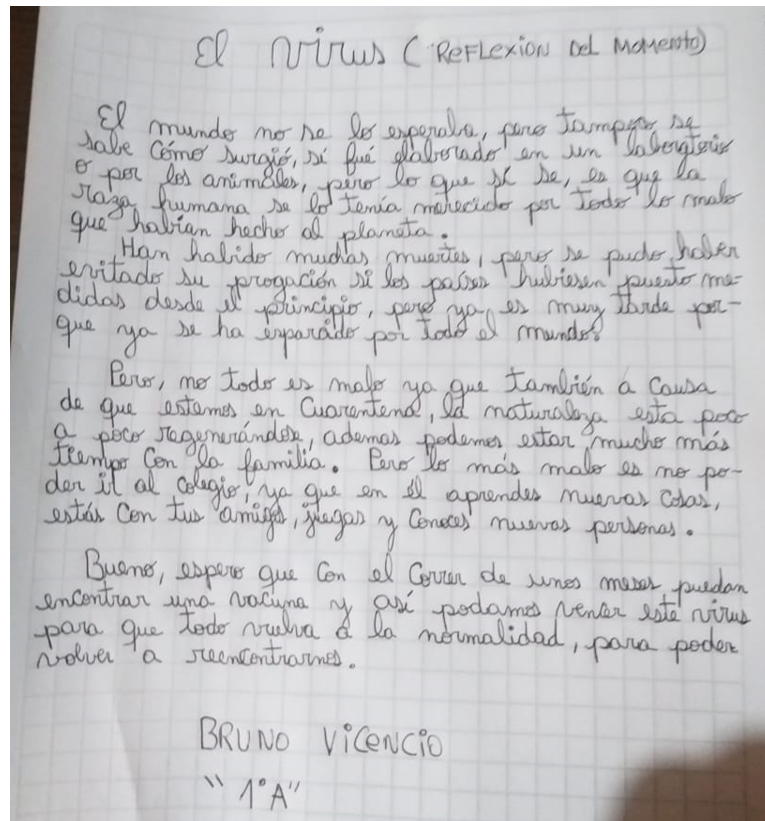 El virus (Reflexion del momento)
El mundo no se lo esperaba, pero tampoco se
sabe cómo surgió, sí fué elaborado en un laboratorio
o por los animales, pero lo que sí se, es que la
raza humana se lo tenía merecido por todo lo malo
que habían hecho al planeta.
Han habido muchas muertes, pero se pudo haber
evitado su progación si los países hubiesen puesto me-
didas desde el principio, pero ya es muy tarde por-
que ya se ha esparcido por todo el mundo.
Pero, no todo es malo ya que también a causa
de que estamos en cuarentena, la naturaleza esta poco
a poco regenerándose, ademas podemos estar mucho más
tiempo con la familia. Pero lo más malo es no po-
der ir al colegio, ya que en él aprendes nuevas cosas,
estás con tus amigos, juegas y conoces nuevas personas.
Bueno, espero que con el correr de unos meses puedan
encontrar una vacuna y así podamos vencer este virus
para que todo vuelva a la normalidad, para poder
volver a reencontrarnos.
BRUNO VICENCIO
"1°A"